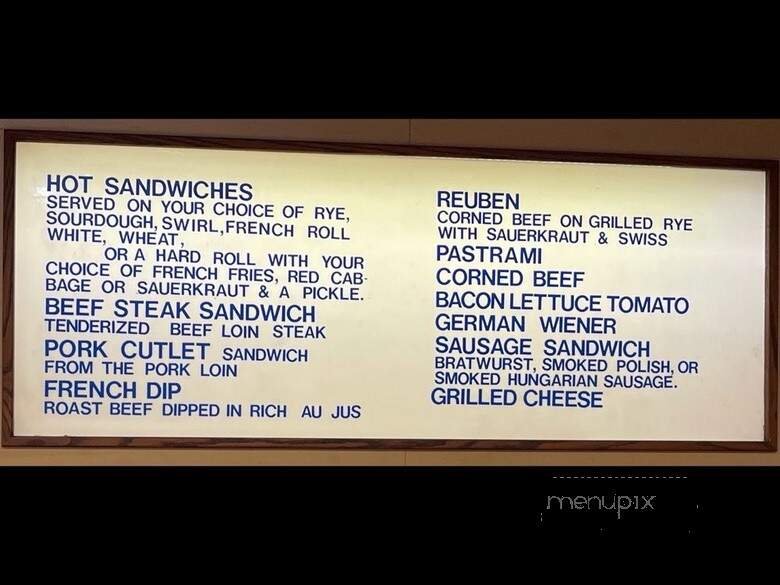 HOT SANDWICHES
SERVED ON YOUR CHOICE OF RYE,
SOURDOUGH, SWIRL, FRENCH ROLL
WHITE, WHEAT,
OR A HARD ROLL WITH YOUR
CHOICE OF FRENCH FRIES, RED CAB-
BAGE OR SAUERKRAUT & A PICKLE.
BEEF STEAK SANDWICH
TENDERIZED BEEF LOIN STEAK
PORK CUTLET SANDWICH
FROM THE PORK LOIN
FRENCH DIP
ROAST BEEF DIPPED IN RICH AU JUS
REUBEN
CORNED BEEF ON GRILLED RYE
WITH SAUERKRAUT & SWISS
PASTRAMI
CORNED BEEF
BACON LETTUCE TOMATO
GERMAN WIENER
SAUSAGE SANDWICH
BRATWURST, SMOKED POLISH, OR
SMOKED HUNGARIAN SAUSAGE.
GRILLED CHEESE
menupix